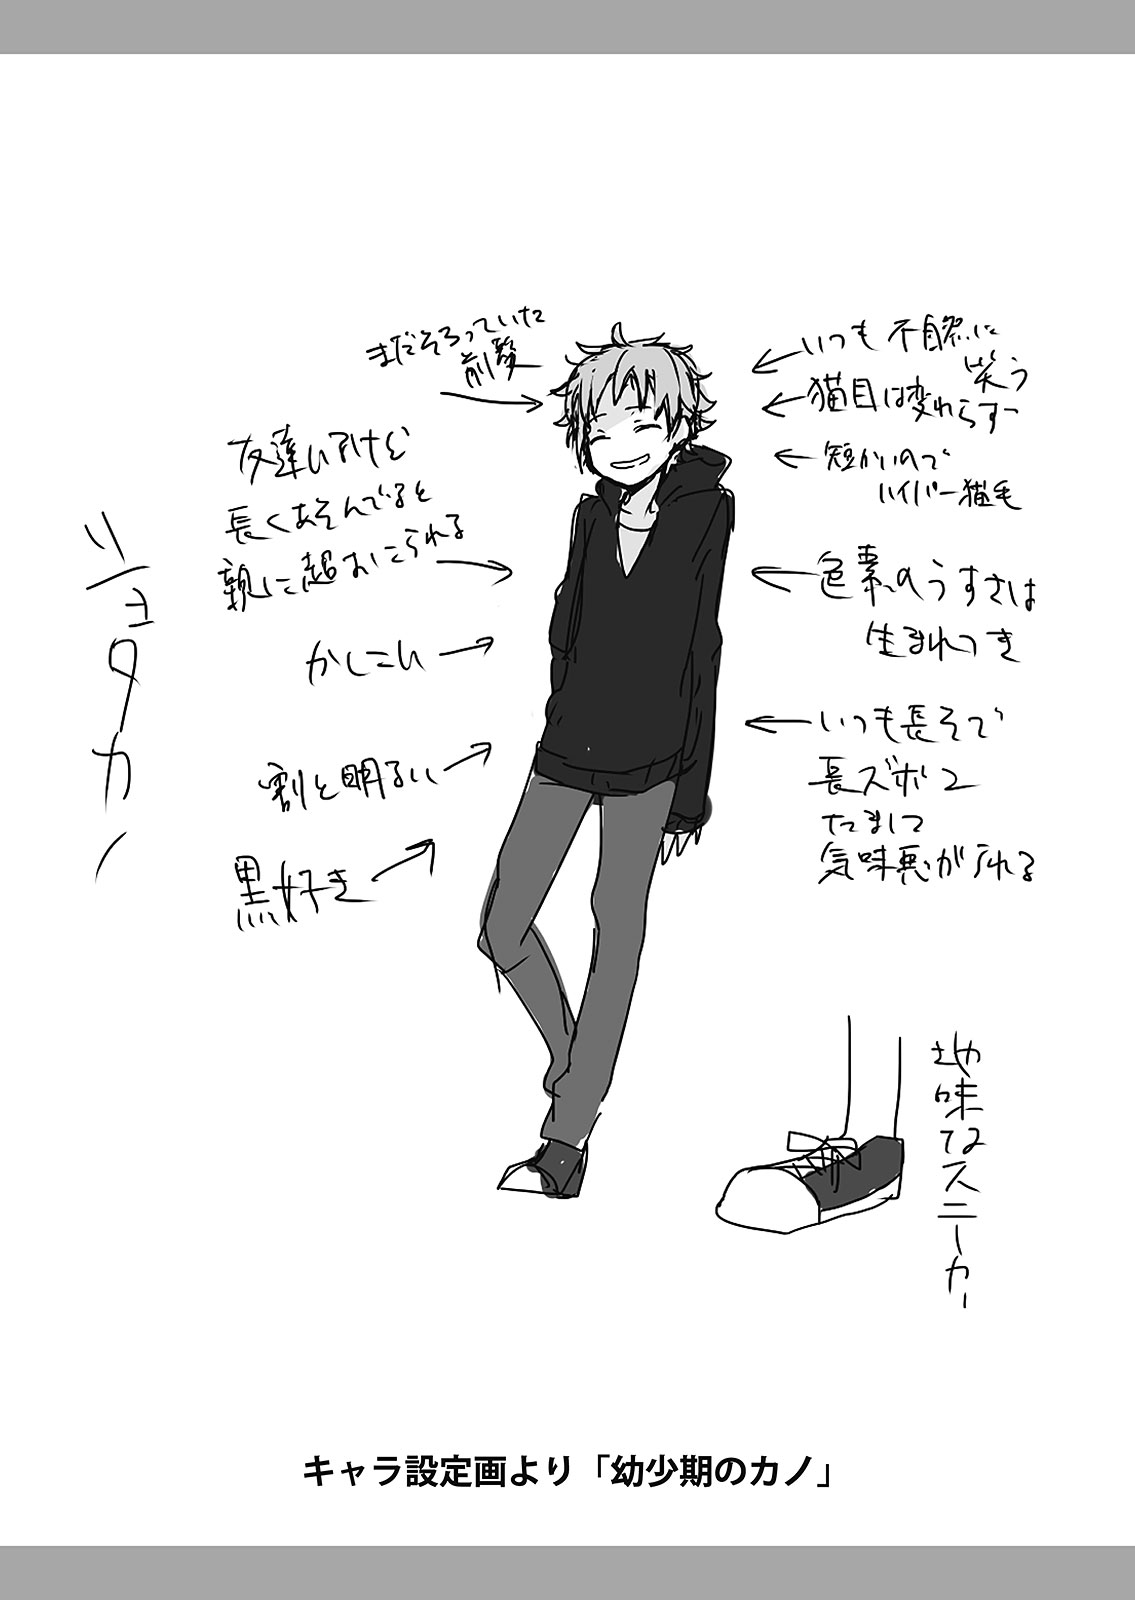 まだそろっていた
前髪
友達いるけど
長くあそんでると
親に超おこられる
かしこい
割と明るい
黒好き
いつも不自然に
笑う
猫目は変わらずー
短かいので
ハイパー猫毛
色素のうすさは
生まれつき
いつも長そで
長ズボン
だまして
気味悪がられる
地味なスニーカー
キャラ設定画より「幼少期のカノ」